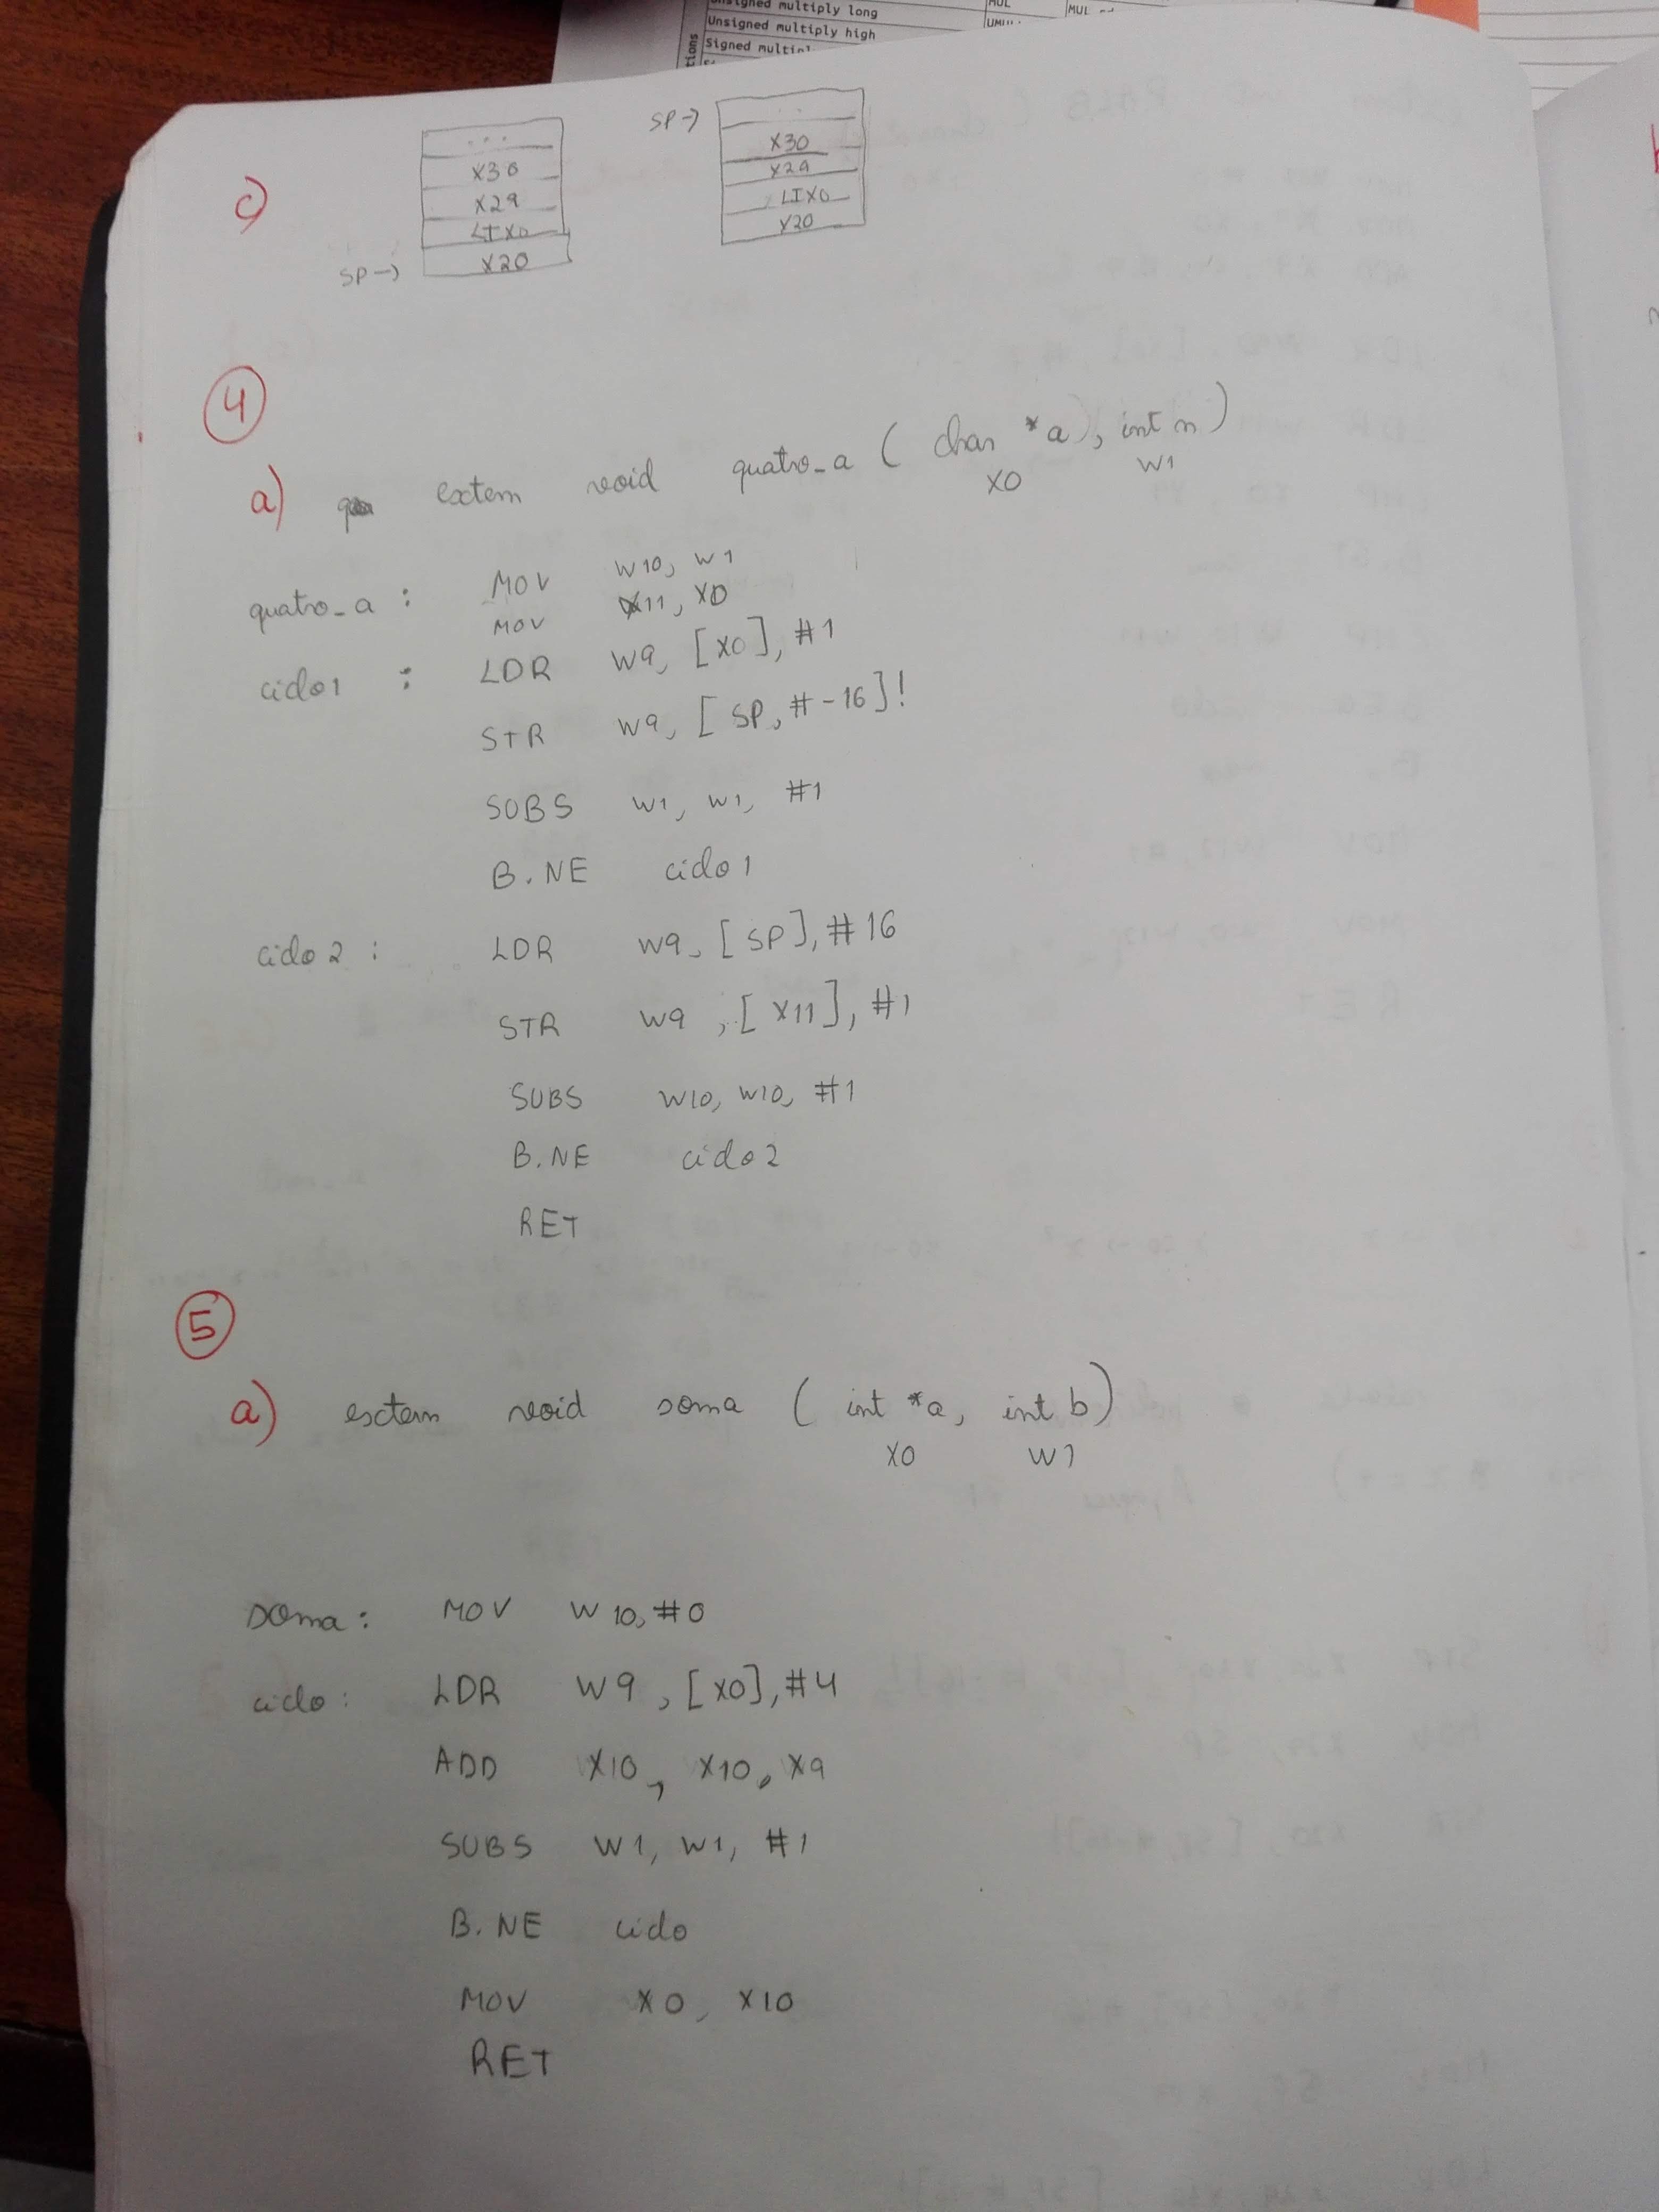 Unsigned multiply long
MUL
MUL
Unsigned multiply high
Signed
tions
c)
...
X30
X29
LIXO
SP→ X20
SP→ ..
X30
X29
LIXO
X20
4
a) extern void quatro_a ( char *a), int n)
X0 W1
quatro_a : MOV W10, W1
MOV X11, X0
ciclo1 : LDR W9, [X0], #1
STR W9, [SP, #-16]!
SUBS W1, W1, #1
B.NE ciclo1
ciclo2 : LDR W9, [SP], #16
STR W9, [X11], #1
SUBS W10, W10, #1
B.NE ciclo2
RET
5
a) extern void soma ( int *a, int b)
X0 W1
soma: MOV W10, #0
ciclo: LDR W9, [X0], #4
ADD X10, X10, X9
SUBS W1, W1, #1
B.NE ciclo
MOV X0, X10
RET